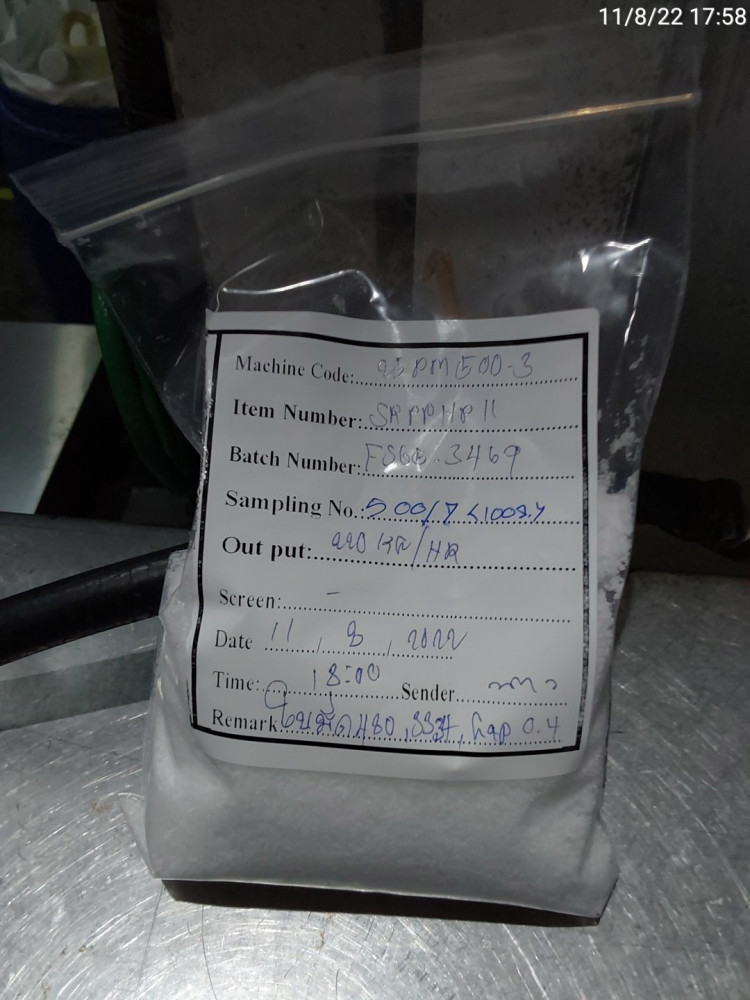 11/8/22 17:58
Machine Code: PM500-3
Item Number: SRPPHP11
Batch Number: 3469
Sampling No.: 500/7
Out put: 220 KG/HR
Screen: -
Date 11, 8, 2022
Time: 18:00 Sender
Remark ใบมีด 480, Gap 0.4